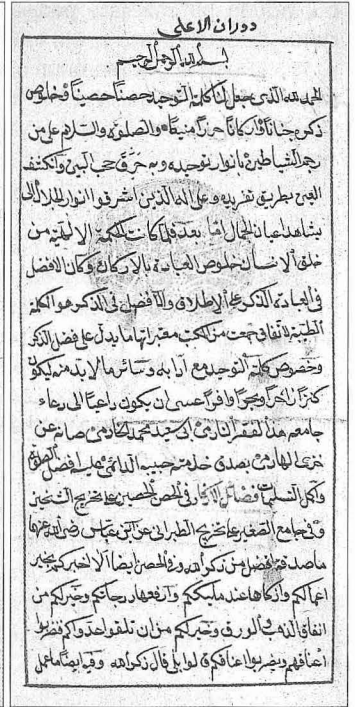 دوران الاعلى
بسم الله الرحمن الرحيم
الحمد لله الذى جعل لنا كلمة التوحيد حصنا حصينا وخلوص
ذكره جنانا واركانا حرزا منيعا والصلوة والسلام على من
رجم الشياطين بانوار توحيده وبه خرق حجب البين وانكشف
الغين بطريق تفريده وعلى اله الذين اشرقوا انوار الجلال الى
مشاهد اعيان الجمال اما بعد فلما كانت الحكمة الالهية من
خلق الانسان خلوص العبادة بالاركان وكان الافضل
فى العبادة الذكر على الاطلاق والافضل فى الذكر هو الكلمة
الطيبة بالاتفاق جمعت من الكتب معتبراتها ما يدل على فضل الذكر
وخصوص كلمة التوحيد مع ادابه وسائر ما لابد منه ليكون
كنزا زاخرا وبحرا وافرا عسى ان يكون داعيا الى دعاء
جامعه هذا الفقير ابى سعيد محمد الخادمى صانه عن
خزى الهادى بصدق خدمة حبيبه الداعى عليه افضل الصلوة
واكمل التسليمات فضائل الاذكار فى الحصن الحصين على تخريج الشيخين
وفى جامع الصغير على تخريج الطبرانى عن ابن عباس رضى الله عنهما
ما صدقة افضل من ذكر الله وفى الحصن ايضا الا اخبركم بخير
اعمالكم وازكاها عند مليككم وارفعها درجاتكم وخير لكم من
انفاق الذهب والورق وخير لكم من ان تلقوا عدوكم فتضربوا
اعناقهم ويضربوا اعناقكم قالوا بلى قال ذكر الله وفيه ايضا ما عمل